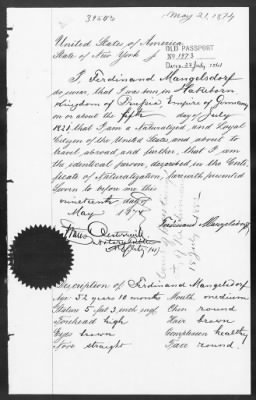 May 21, 1874
United States of America
State of New York
OLD PASSPORT
No 1973
I, Ferdinand Mangelsdorf
do swear, that I was born in
Kingdom of Prussia, Empire of Germany
on or about the fifth day of July
1821 that I am a Naturalized and Loyal
Citizen of the United States and about to
travel abroad and further, that I am
the identical person, described in the Certi-
ficate of Naturalization, herewith presented
Sworn to before me this
nineteenth day of
May 1874
Ferdinand Mangelsdorf
Notary Public
Description of Ferdinand Mangelsdorf
Age 52 years 10 months Mouth medium
Stature 5 feet 3 inch engl. Chin round
Forehead high Hair brown
Eyes brown Complexion healthy
Nose straight Face round.